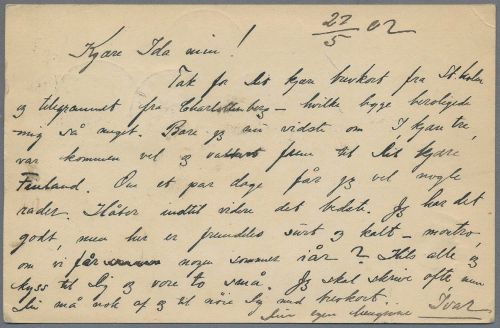 27/5 02
Kjære Ida min!
Tak for dit kjære brevkort fra St. holm
og telegrammet fra Charlottenberg – hvilke begge beroligede
mig så meget. Bare jeg nu vidste om I kjære tre,
var kommen vel og frem til dit kjære
Finland. Om et par dage får jeg vel nogle
rader. Håber indtil videre det bedste. Jeg har det
godt, men her er fremdeles surt og kalt – montro,
om vi får nogen sommer iår? Hils alle, og
kyss til dig og vore to små. Jeg skal skrive ofte men
du må nok af og til nøie dig med brevkort.
Din egen Ivar